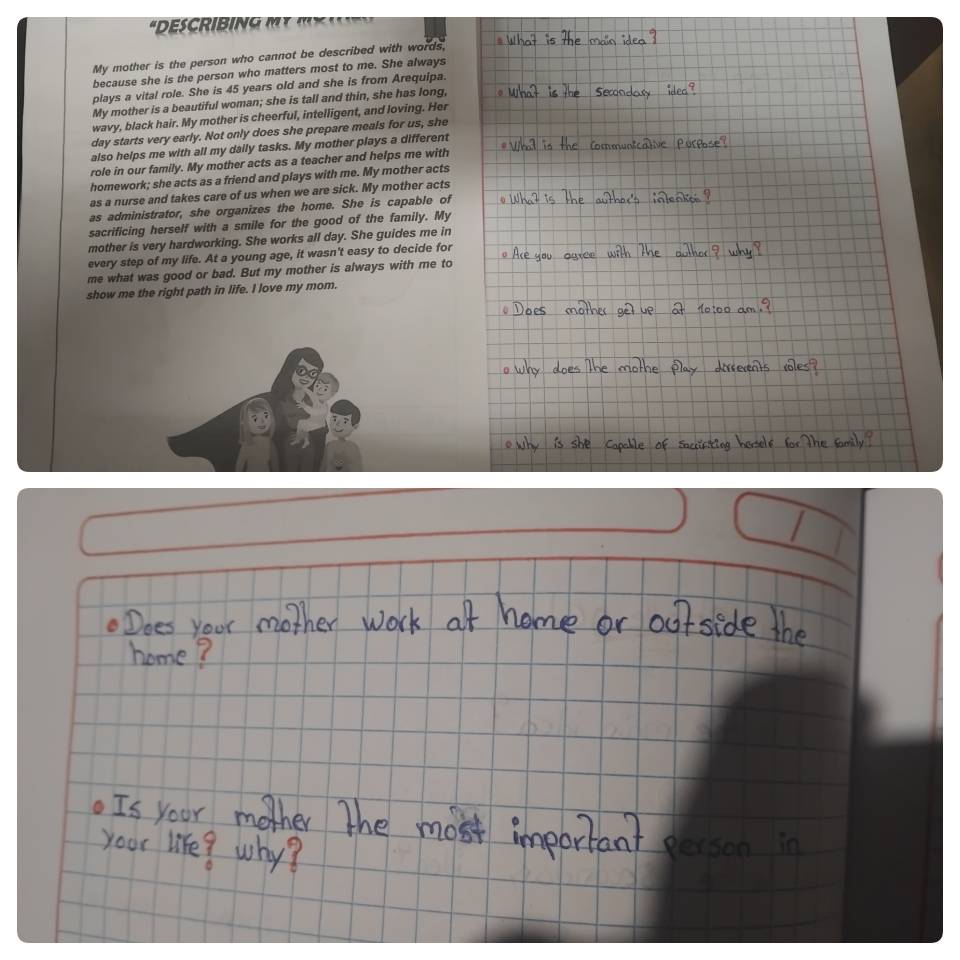 "DESCRIBING MY MOTHER"
My mother is the person who cannot be described with words,
because she is the person who matters most to me. She always
plays a vital role. She is 45 years old and she is from Arequipa.
My mother is a beautiful woman; she is tall and thin, she has long,
wavy, black hair. My mother is cheerful, intelligent, and loving. Her
day starts very early. Not only does she prepare meals for us, she
also helps me with all my daily tasks. My mother plays a different
role in our family. My mother acts as a teacher and helps me with
homework; she acts as a friend and plays with me. My mother acts
as a nurse and takes care of us when we are sick. My mother acts
as administrator, she organizes the home. She is capable of
sacrificing herself with a smile for the good of the family. My
mother is very hardworking. She works all day. She guides me in
every step of my life. At a young age, it wasn't easy to decide for
me what was good or bad. But my mother is always with me to
show me the right path in life. I love my mom.
• What is the main idea?
• What is the secondary idea?
• What is the communicative purpose?
• What is the author's intention?
• Are you agree with the author? why?
• Does mother get up at 10:00 am.?
• Why does the mothe play differents roles?
• Why is she capable of sacrifiting herself for the family?
• Does your mother work at home or outside the
home?
• Is your mother the most important person in
your life? why?